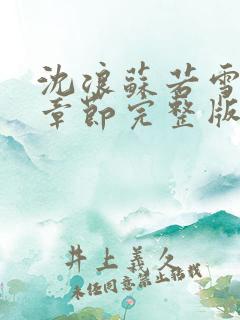 沈浪蘇若雪
章節完整版
井上義久
未经同意禁止转载